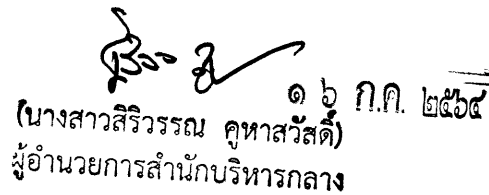 ๑๖ ก.ค. ๒๕๖๔
(นางสาวสิริวรรณ คูหาสวัสดิ์)
ผู้อำนวยการสำนักบริหารกลาง